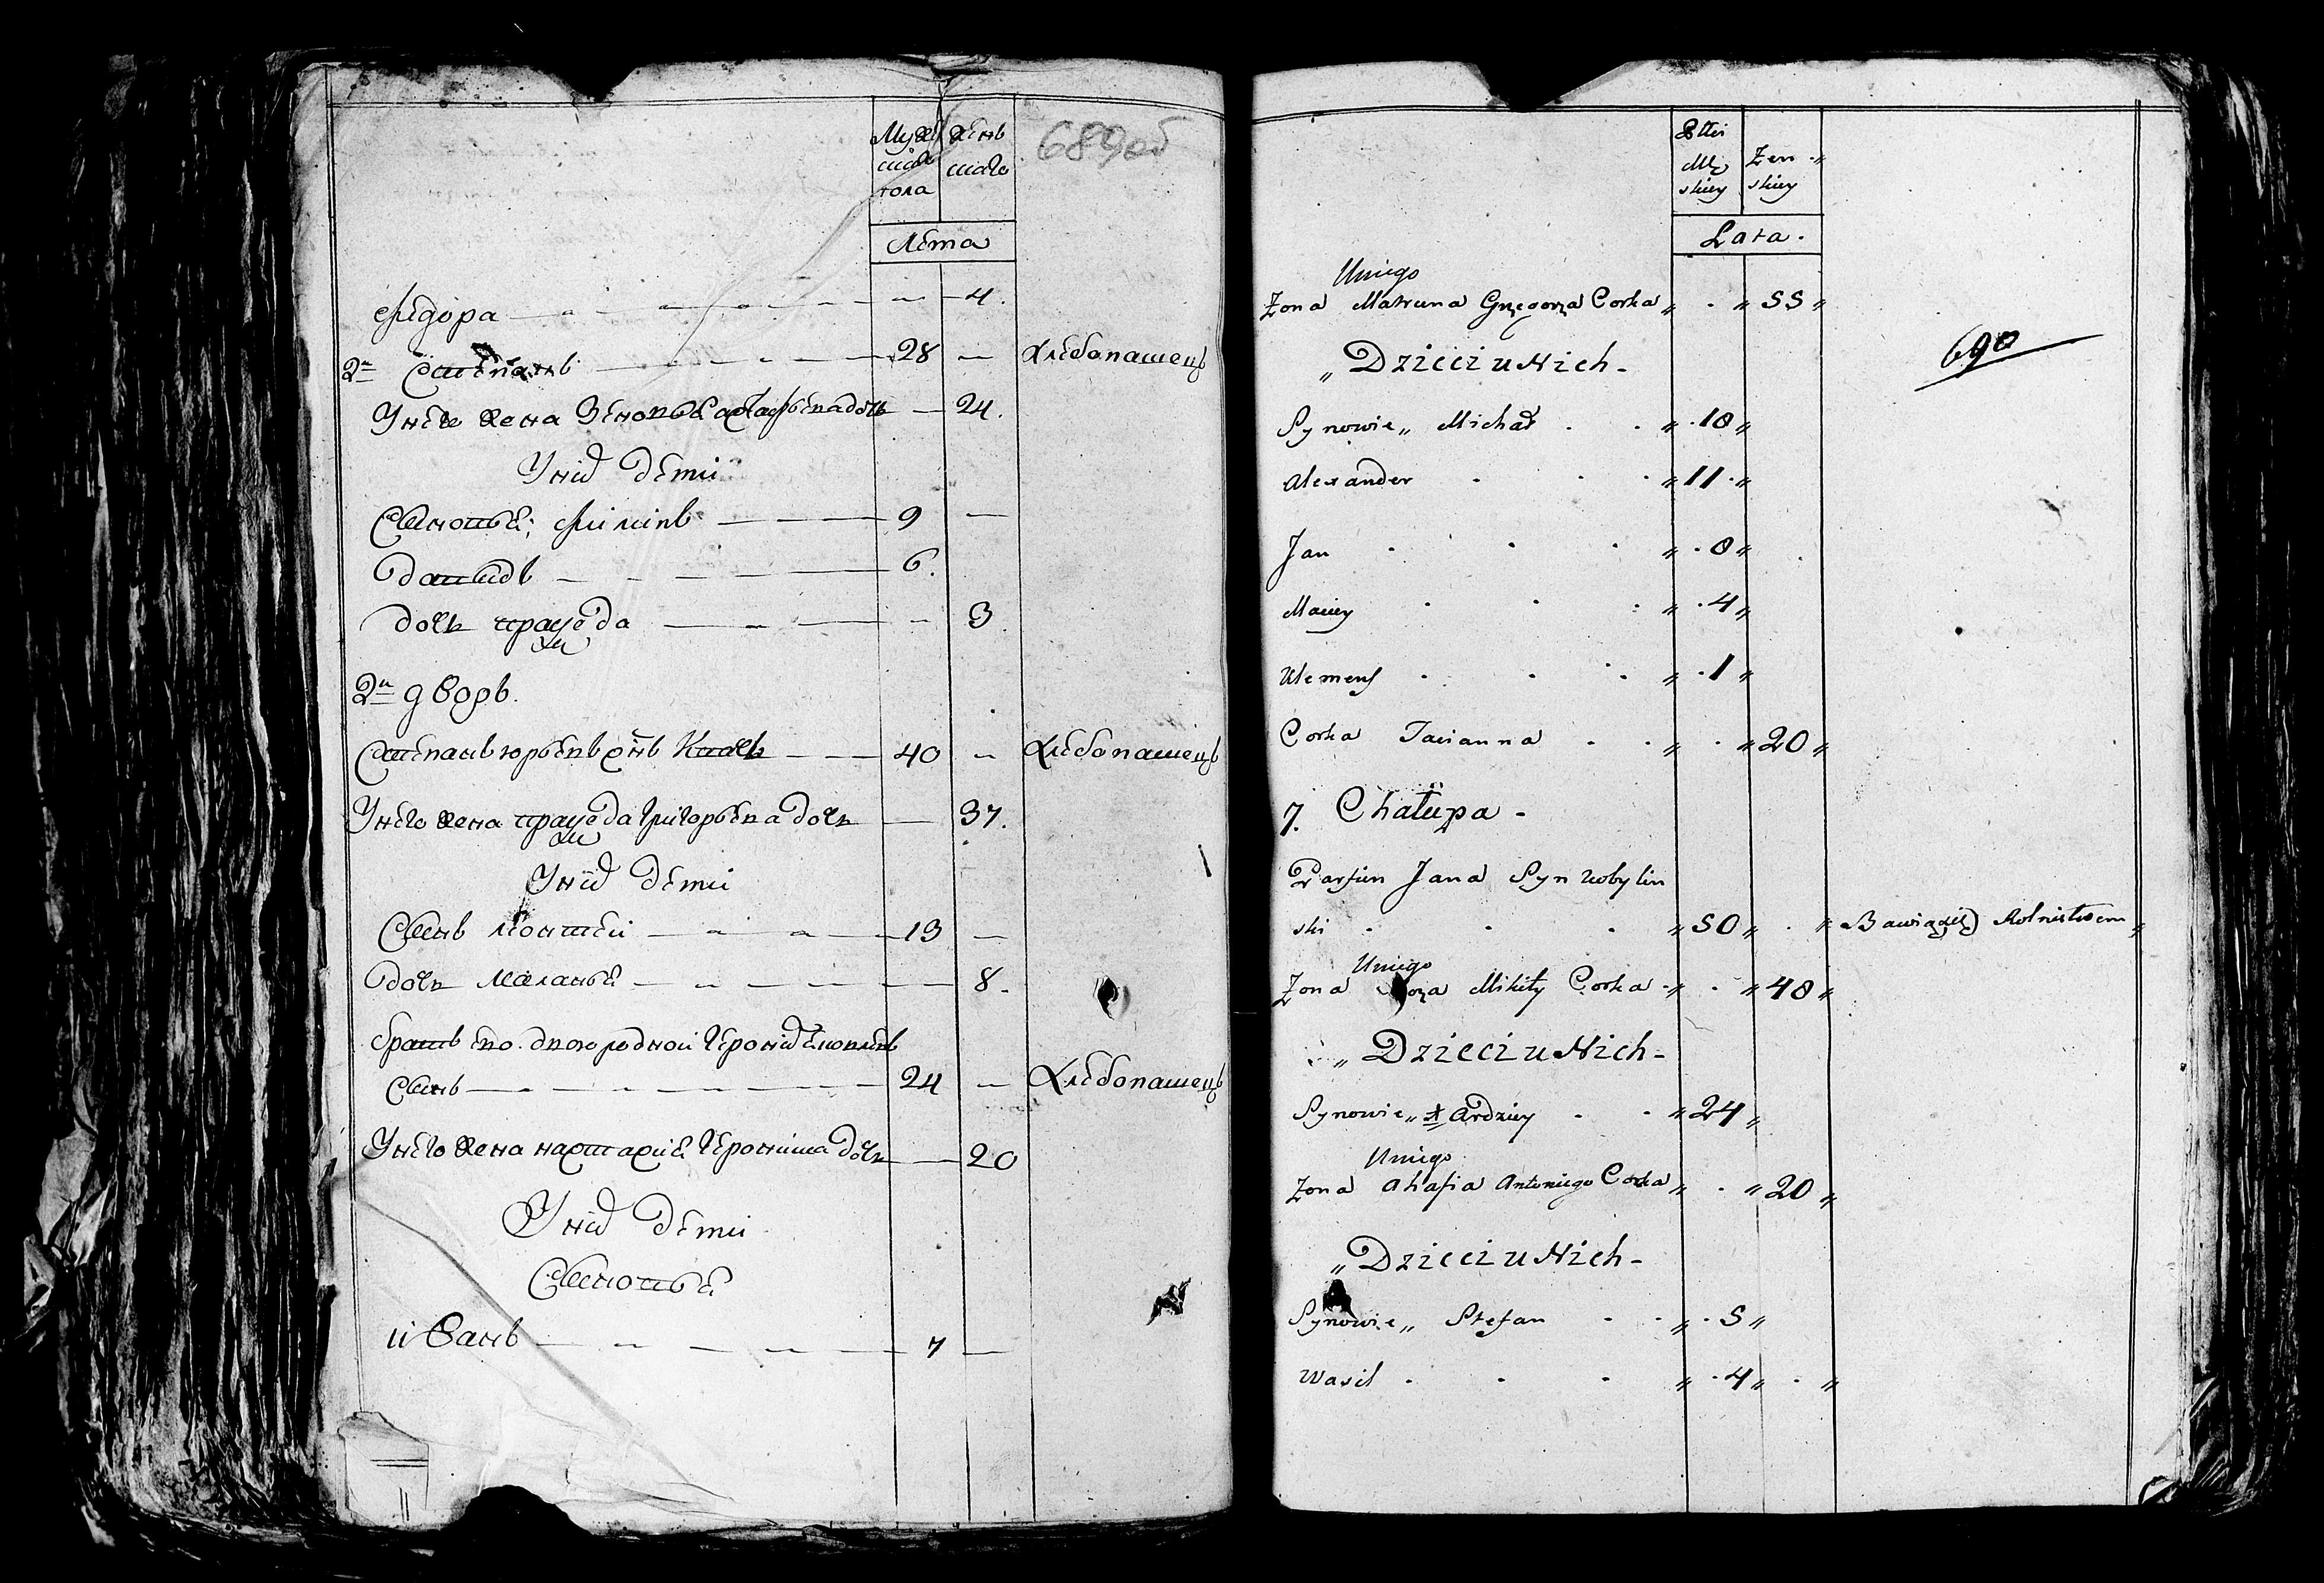 Муже
ска
пола
Жень
скаго
689об
Лѣта
Фидора 4.
2й Стѣпанъ 28 Хлѣбопашецъ
У него жена Зѣновѣя 24.
У них дѣти
Сыновья; Филипъ 9
Давидъ 6.
дочь 3
2й дворъ.
Стѣпанъ Юрьевъ сынъ 40 Хлѣбопашецъ
У него жена Григорьева дочь 37.
У них дѣти
Сынъ 13
дочь Маланья 8.
братъ его двоюродной
Сынъ 24 Хлѣбопашецъ
У него жена дочь 20
У них дѣти
Сыновья
иванъ 7
Płci
Mę
skiey
Zen
skiey
Lata.
690
Uniego
Zona Matruna Grzegorza Corka „ . „ 55 „
„ Dzieci u Nich -
Synowie „ Michał . . „ . 18 „
Alexander . . . „ 11 . „
Jan . . . „ . 8 „
Maciey . . . „ . 4 „
Klemens . . . „ . 1 „
Corka Tacianna . . „ . „ 20 „
7. Chałupa -
Parfiin Jana Syn Kobylin
ski . . . „ 50 „ . „ Bawiącysię Rolnictwem „
Uniego
Zona Mikity Corka „ . „ 48 „
„ Dzieci u Nich -
Synowie „ Ardziey . . „ 24 „
Uniego
Zona Ahafia Antoniego Corka „ . „ 20 „
„ Dzieci u Nich -
Synowie „ Stefan . . „ . 5 „
Wasil . . . „ . 4 „ . „